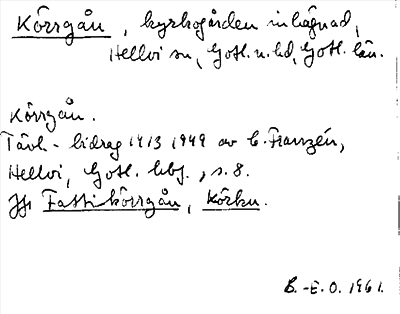 Körrgån, kyrkogården inhägnad,
Hellvi sn, Gotl. n. hd, Gotl. län.
Körrgån.
Tävl-bidrag 1413 1949 av C. Franzén,
Hellvi, Gotl. , s. 8.
Jfr Fattikörrgån, Körku.
B.-E.O. 1961.